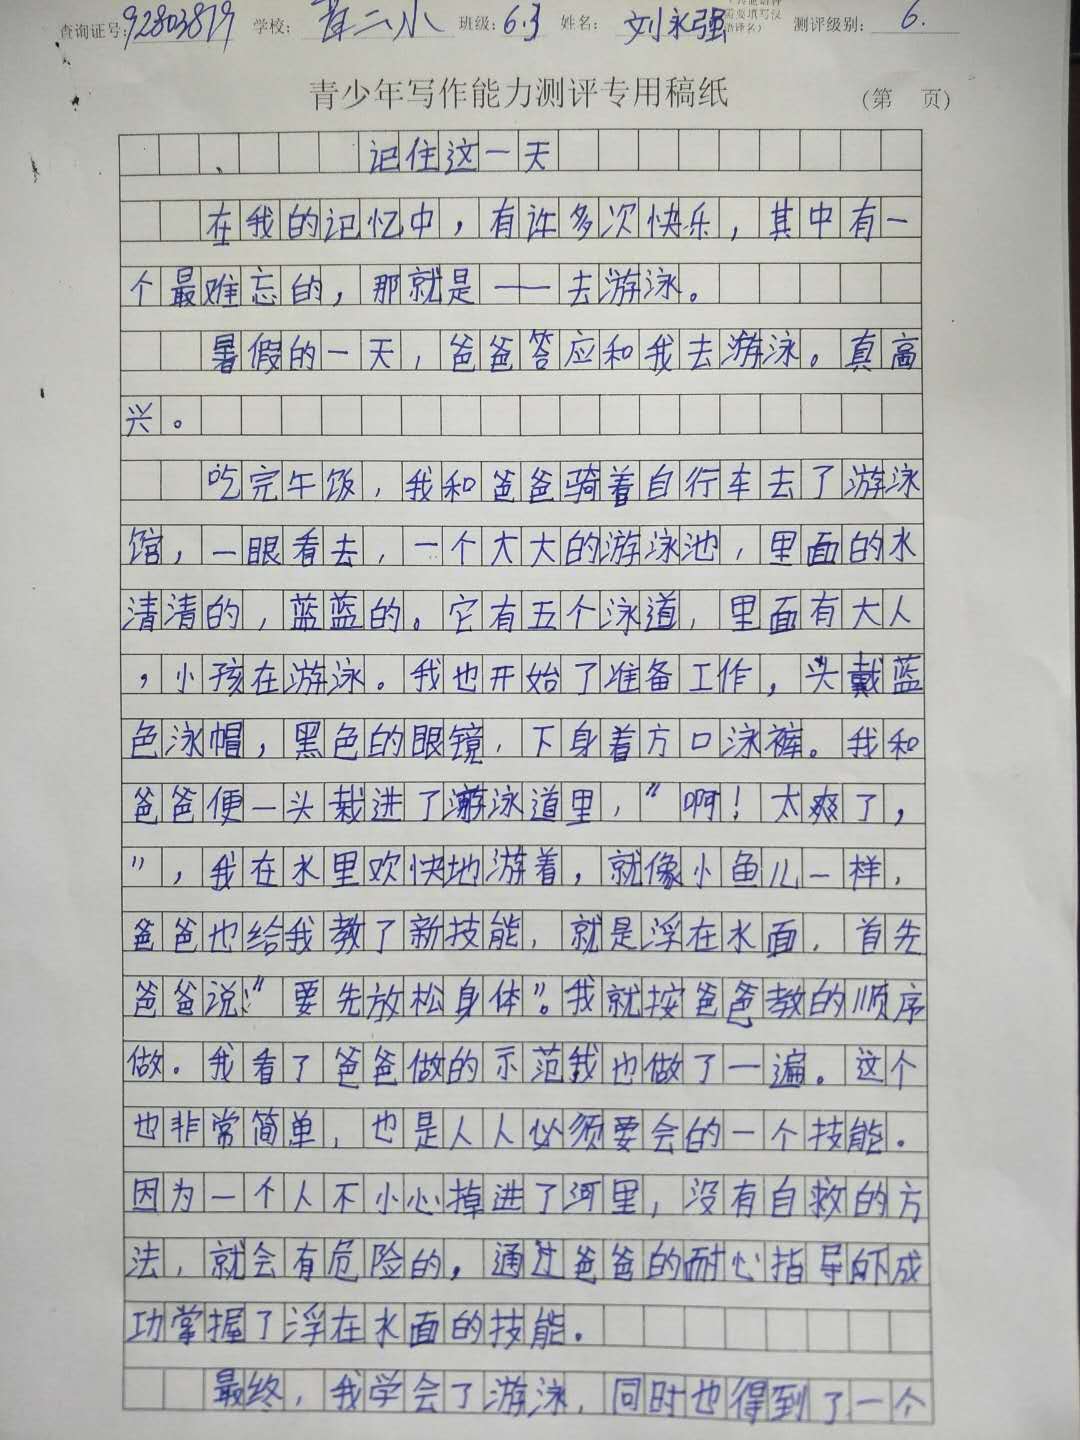 查询证号:92803879 学校: 二小 班级: 6.3 姓名: 刘永强 测评级别: 6.
青少年写作能力测评专用稿纸 (第 页)
记住这一天
在我的记忆中,有许多次快乐,其中有一
个最难忘的,那就是——去游泳。
暑假的一天,爸爸答应和我去游泳。真高
兴。
吃完午饭,我和爸爸骑着自行车去了游泳
馆,一眼看去,一个大大的游泳池,里面的水
清清的,蓝蓝的。它有五个泳道,里面有大人
,小孩在游泳。我也开始了准备工作,头戴蓝
色泳帽,黑色的眼镜,下身着方口泳裤。我和
爸爸便一头栽进了游泳道里,"啊!太爽了,
",我在水里欢快地游着,就像小鱼儿一样,
爸爸也给我教了新技能,就是浮在水面,首先
爸爸说:"要先放松身体"。我就按爸爸教的顺序
做.我看了爸爸做的示范我也做了一遍。这个
也非常简单,也是人人必须要会的一个技能.
因为一个人不小心掉进了河里,没有自救的方
法,就会有危险的,通过爸爸的耐心指导的下成
功掌握了浮在水面的技能.
最终,我学会了游泳,同时也得到了一个